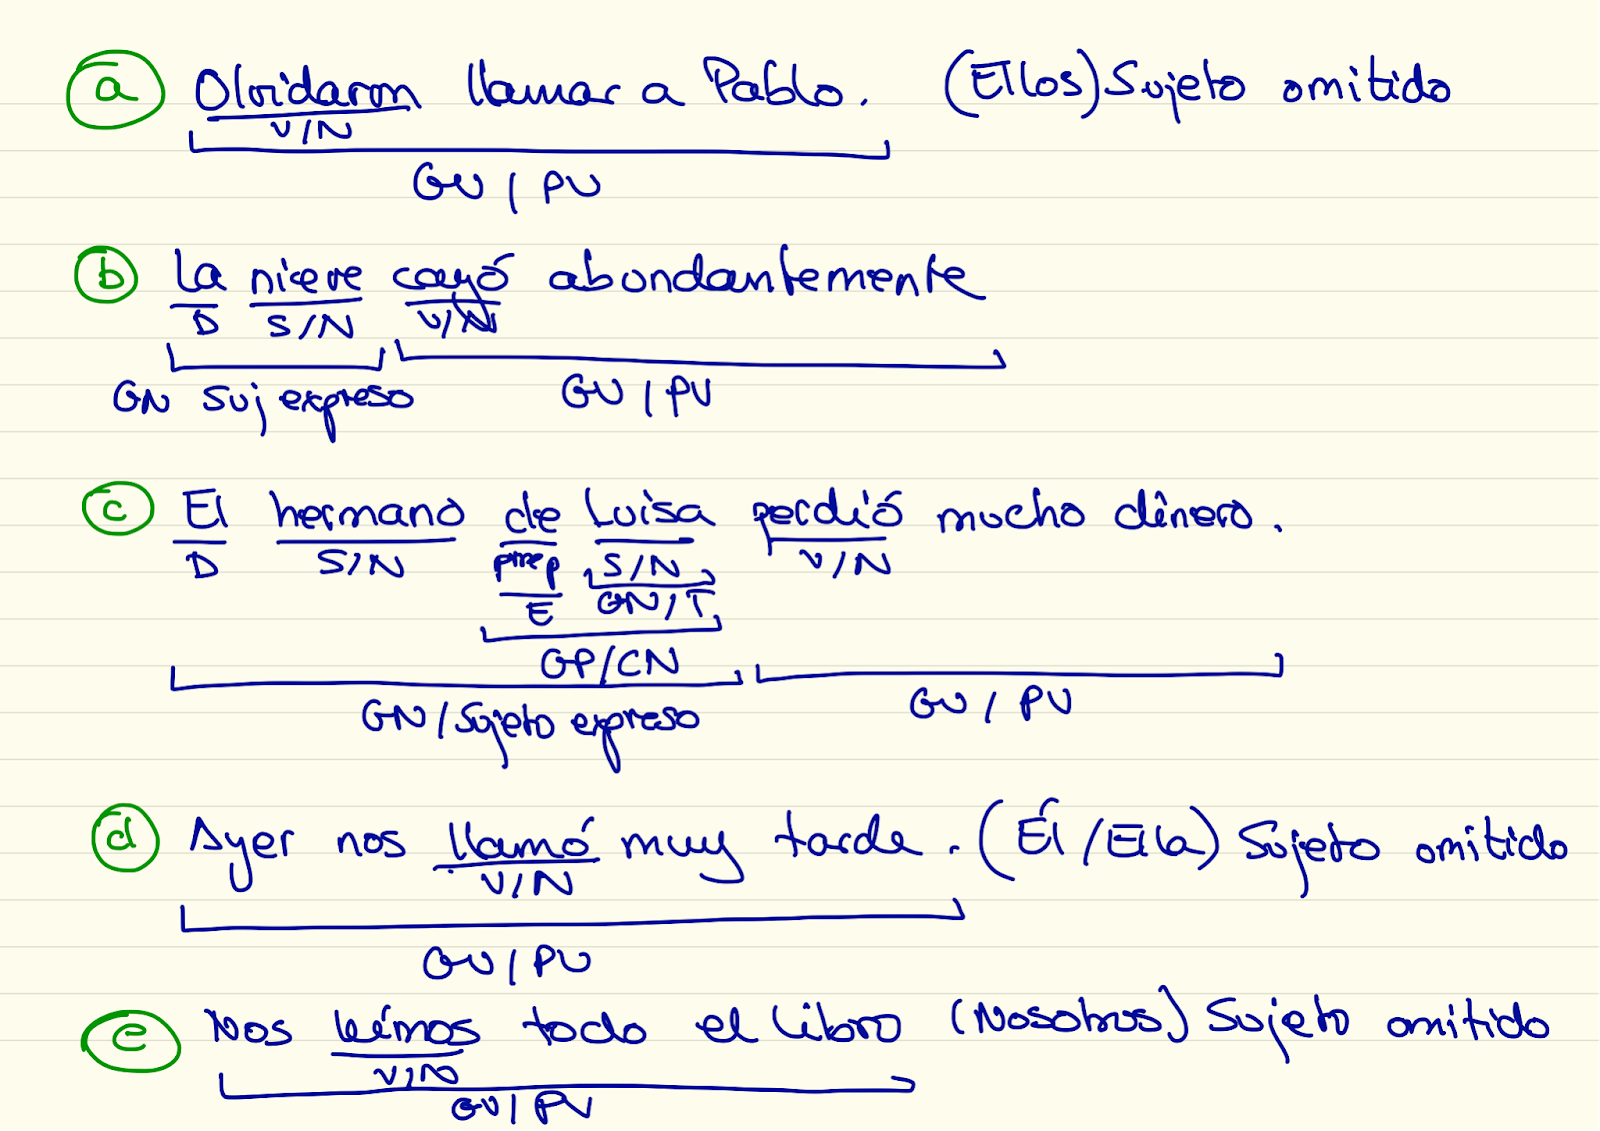 a Olvidaron llamar a Pablo. (Ellos) Sujeto omitido
V/N
GV / PV
b La nieve cayó abundantemente
D S/N V/N
GN Suj expreso GV / PV
c El hermano de Luisa perdió mucho dinero.
D S/N prep S/N V/N
E GN/T
GP/CN
GN / Sujeto expreso GV / PV
d Ayer nos llamó muy tarde. (Él / Ella) Sujeto omitido
V/N
GV / PV
e Nos leímos todo el libro (Nosotros) Sujeto omitido
V/N
GV / PV